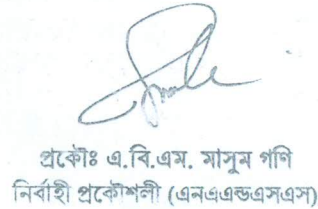 প্রকৌঃ এ.বি.এম. মাসুম গণি
নির্বাহী প্রকৌশলী (এনএএন্ডএসএস)